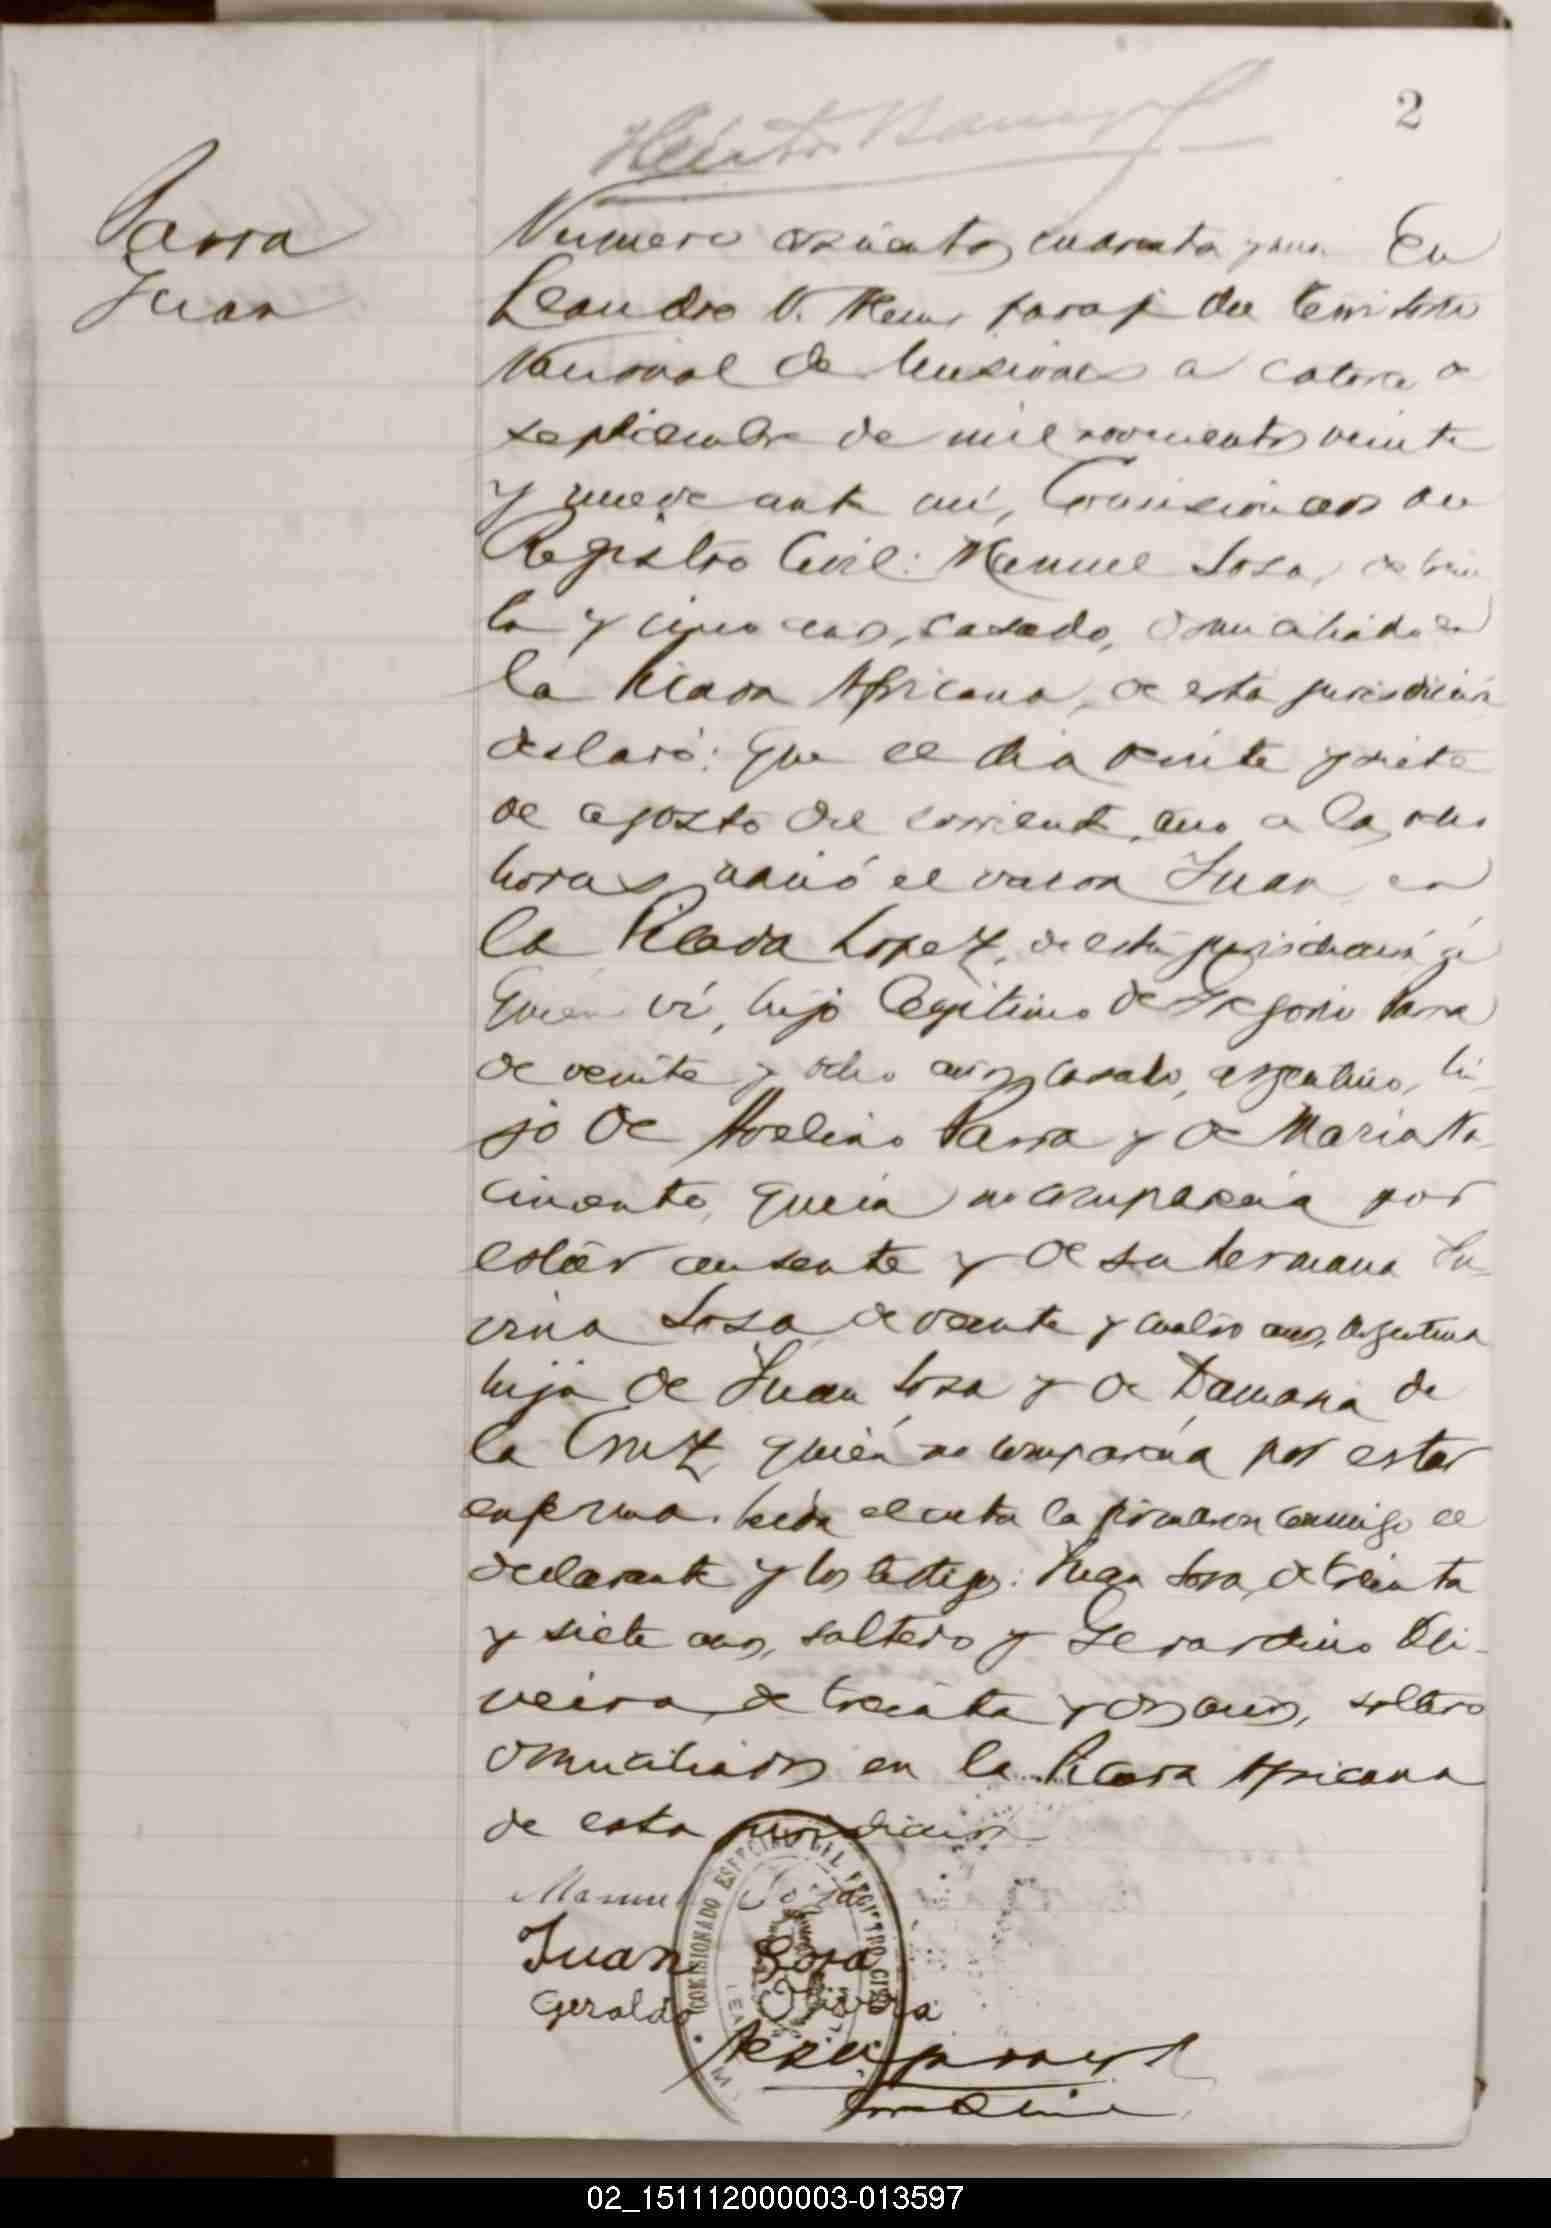 2
Parra
Juan
Numero doscientos cuarenta y uno. En
Leandro N. Alem, paraje del Territorio
Nacional de Misiones a catorce de
septiembre de mil novecientos veinte
y nueve ante mí, Comisionado del
Registro Civil: Manuel Sosa, de trein
ta y cinco años, casado, domiciliado en
la Picada Africana, de esta jurisdicción
declaró: Que el dia veinte y siete
de agosto del corriente año a las ocho
horas nació el varon Juan en
la Picada Lopez, de esta jurisdicción á
quién ví, hijo legitimo de Gregorio Parra
de veinte y ocho años, casado, argentino, hi-
jo de Avelino Parra y de Maria Na-
cimento, quein no comparecia por
estár ausente y de su hermana
Sosa, de veinte y cuatro años, argentina
hija de Juan Sosa y de Damana de
la Cruz, quién no comparecia por estar
enferma. Leida el acta la firmaron conmigo el
declarante y los testigos: Juan Sosa, de treinta
y siete años, soltero y Gerardino Oli-
veira, de treinta y dos años, soltero
domiciliados en la Picada Africana
de esta jurisdicción
Manuel Sosa
Juan Sosa
Geraldo Olivera
COMISIONADO ESPECIAL DEL REGISTRO CIVIL
02_151112000003-013597